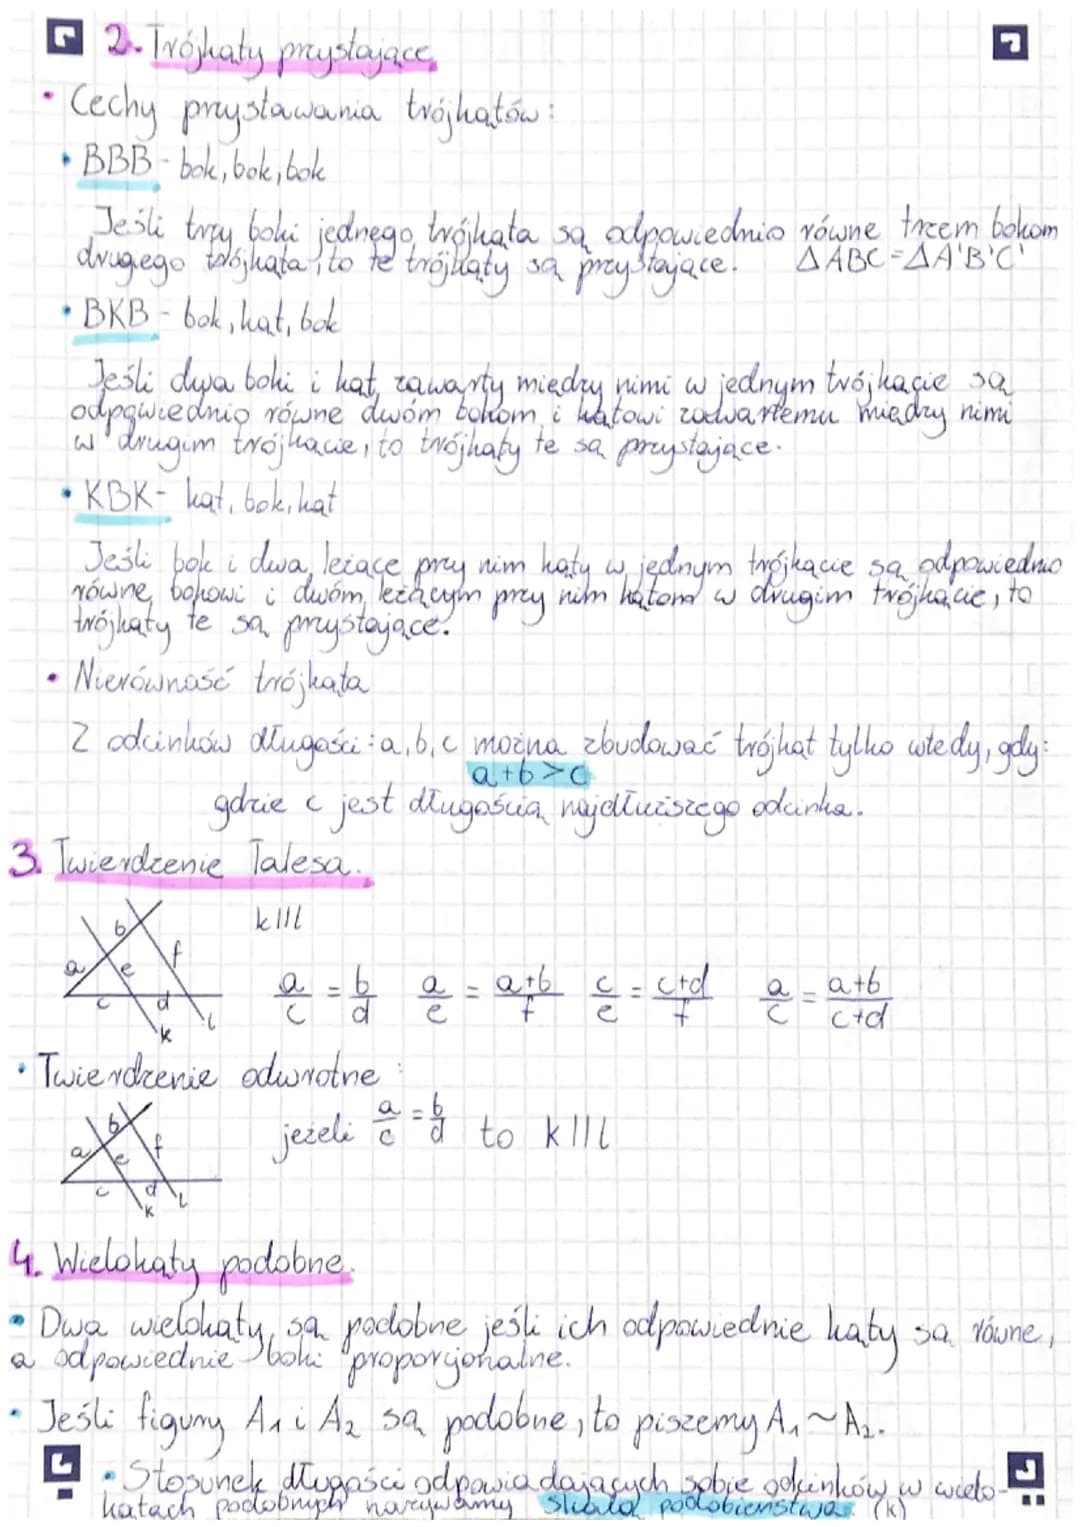 2. Trójkąty przystające
• Cechy przystawania trójkątów:
• BBB - bok, bok, bok
Jeśli trzy boki jednego trójkąta są odpowiednio równe trzem bokom
drugiego trójkąta, to te trójkąty są przystające. ΔABC=ΔA'B'C'
• BKB - bok, kąt, bok
Jeśli dwa boki i kąt zawarty między nimi w jednym trójkącie są
odpowiednio równe dwóm bokom i kątowi zawartemu między nimi
w drugim trójkącie, to trójkąty te są przystające.
• KBK - kąt, bok, kąt
Jeśli bok i dwa leżące przy nim kąty w jednym trójkącie są odpowiednio
równe bokowi i dwóm leżącym przy nim kątom w drugim trójkącie, to
trójkąty te są przystające.
• Nierówność trójkąta
Z odcinków długości: a, b, c można zbudować trójkąt tylko wtedy, gdy:
a+b>c
gdzie c jest długością najdłuższego odcinka.
3. Twierdzenie Talesa.
a b e f c d k l
k || l
a/c = b/d a/e = a+b/f c/e = c+d/f a/c = a+b/c+d
• Twierdzenie odwrotne:
a b e f c d k l
jeżeli a/c = b/d to k || l
4. Wielokąty podobne.
• Dwa wielokąty są podobne jeśli ich odpowiednie kąty są równe,
a odpowiednie boki proporcjonalne.
• Jeśli figury A₁ i A₂ są podobne, to piszemy A₁ ~ A₂.
• Stosunek długości odpowiadających sobie odcinków w wielo-
kątach podobnych nazywamy skalą podobieństwa. (k)